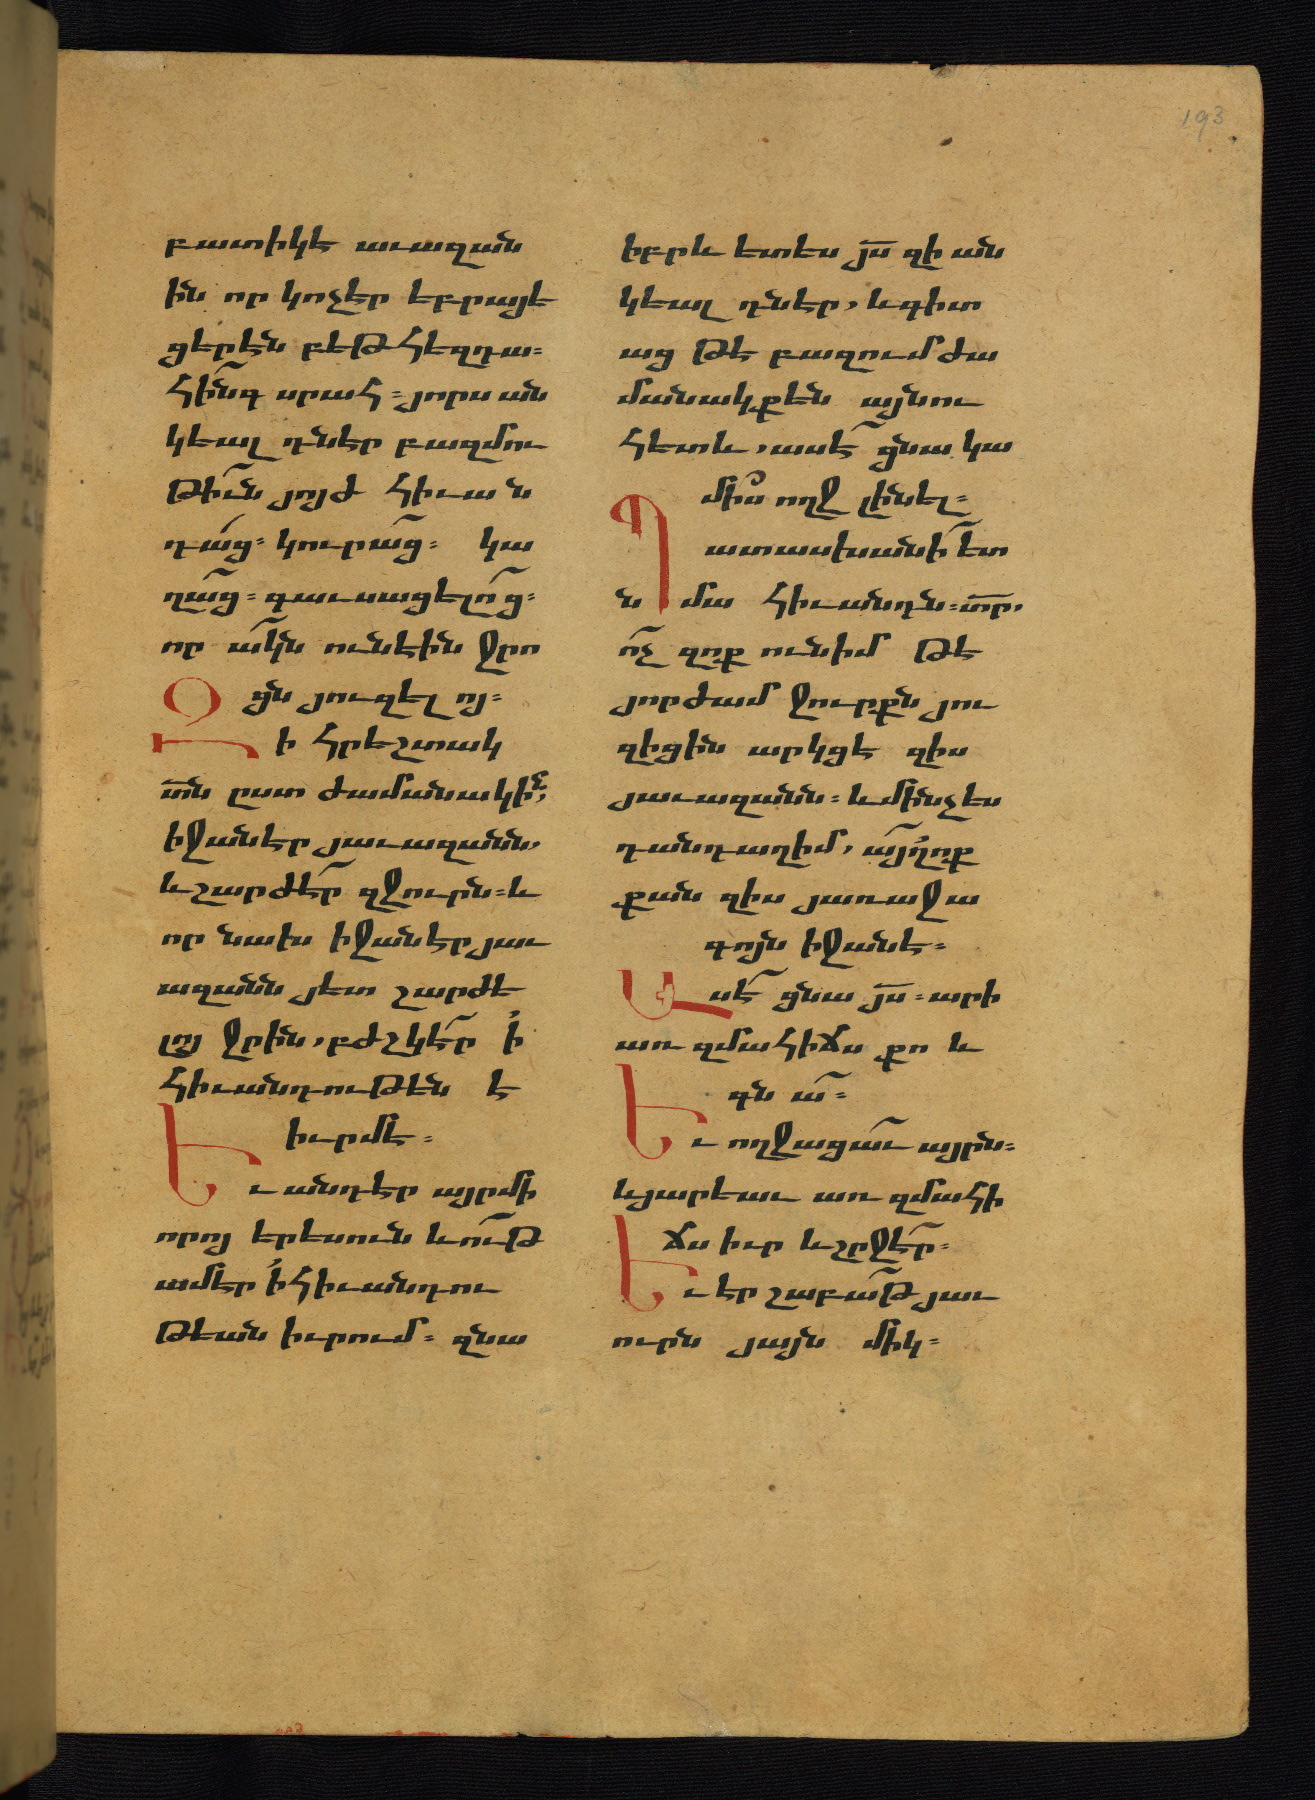 193
բատիկէ աւազան
ին որ կոչէր եբրայե
ցերէն բեթհեզդա։
հինգ սրահ։ յորս ան
կեալ դնէր բազմու
թի՟ւն յոյժ հիւան
դա՟ց։ կուրա՟ց։ կա
ղա՟ց։ գաւսացելո՟ց։
որ ա՟կն ունէին ջրո
ցն յուզել ոյ։
Զի հրեշտակ
տ՟ն ըստ ժամանակի՟
իջանէր յաւազանն,
և շարժէ՟ր զջուրն։ և
որ նախ իջանէր յաւ
ազանն յետ շարժե
լոյ ջրին, բժշկէ՟ր ի
հիւանդութէն է
իւրմէ։
Եւ անդէր այրմի
որոյ երեսուն և ո՟ւթ
ամէր ի հիւանդու
թեան իւրում։ զնա
իբրև ետես յ՟ս զի ան
կեալ դնէր, և գիտ
աց թե բազում ժա
մանակքէն այնու
հետև, ասէ՟ ցնա կա
մի՟ս ողջ լինել։
Պատասխանի՟ ետ
նմա հիւանդն։ տ՟ր,
ո՟չ զոք ունիմ թե
յորժամ ջուրքն յու
զիցին արկցե զիս
յաւազանն։ և մինչ ես
դանդաղիմ, ա՟յլոք
քան զիս յառաջա
գոյն իջանե։
Ասէ՟ ցնա յ՟ս։ արի
առ զմահիճս քո և
գն ա՟։
Եւ ողջացա՟ւ այրն։
և յարեաւ առ զմահի
ճս իւր և շրջէ՟ր։
Եւ էր շաբա՟թ յաւ
ուրն յայն միկ։